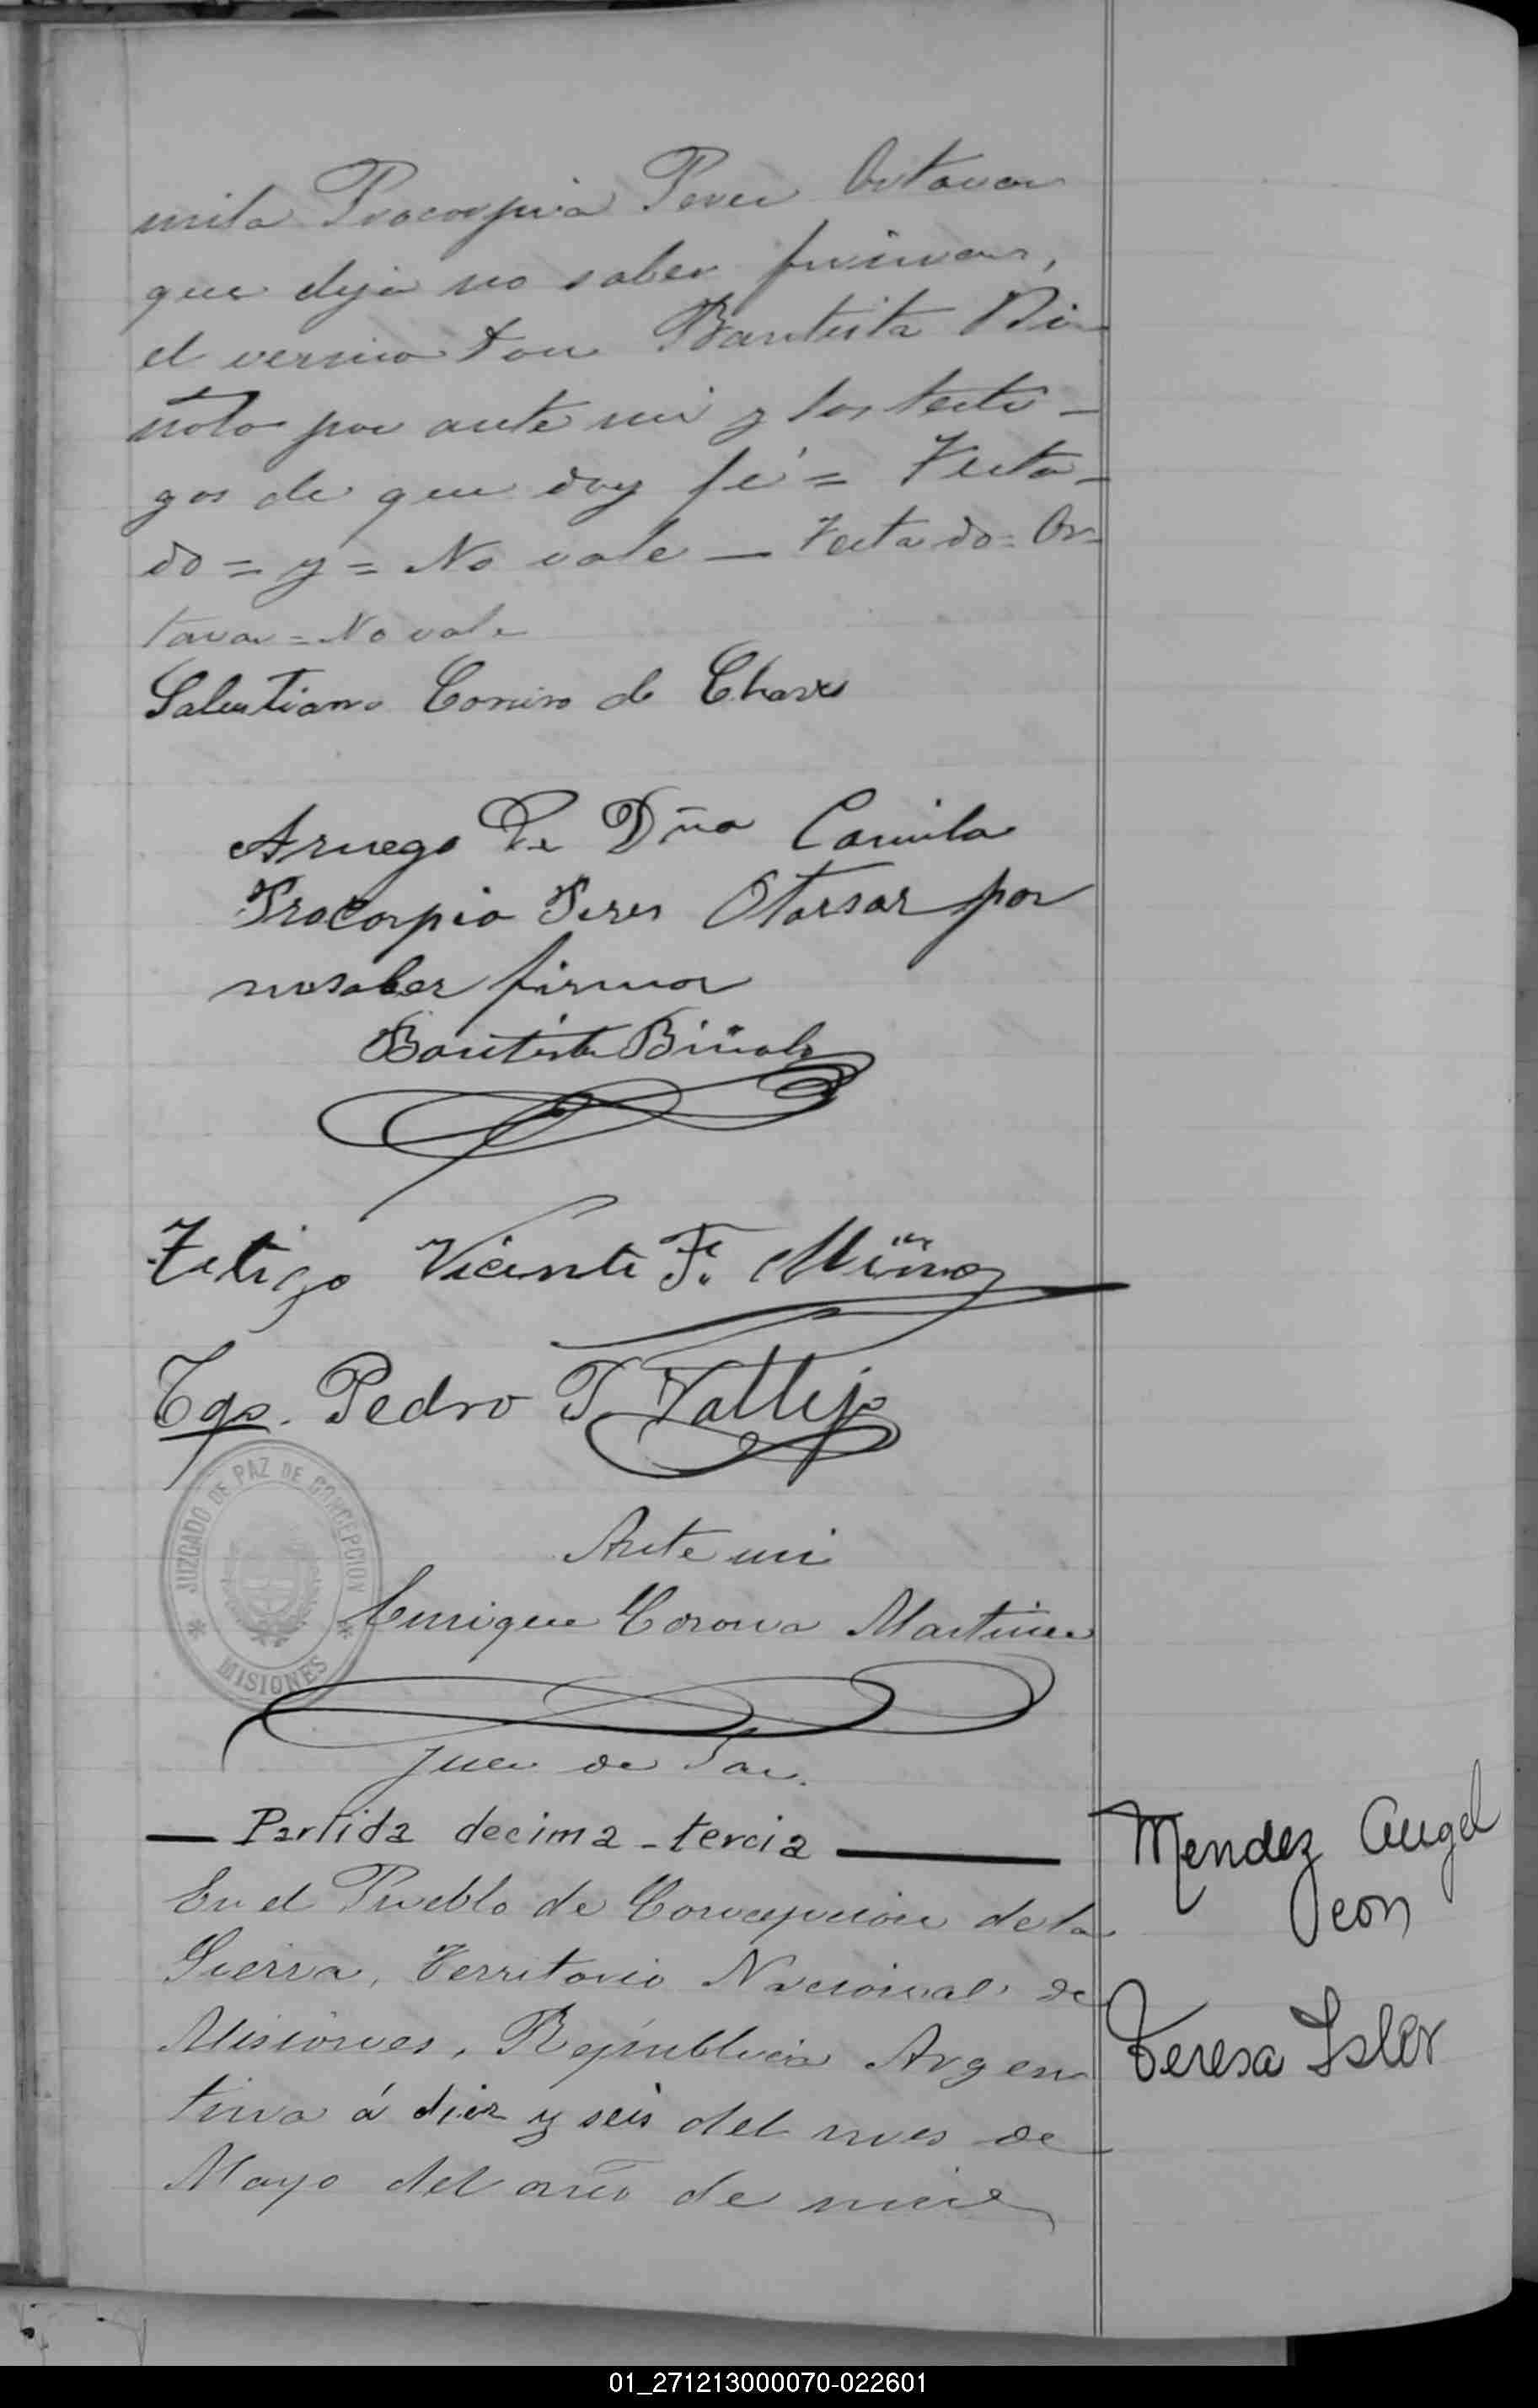 mila Procorpia Perez Ortaear
que dijo no saber firmar,
el vecino Don Bautista Bi
ñolo por ante mi y los testi-
gos de que doy fé = Testa-
do = y = No vale — Testado = Or-
tava = No vale
Salustiano Correiro de Chaves
Aruego De Dña Camila
Procorpio Peres Otarsar por
nosaber firmar
Bautista Biñolo
Tetigo Vicente F. Miño
Tgo. Pedro P. Vallejo
JUZGADO DE PAZ DE CONCEPCION
MISIONES
Ante mi
Enrique Corona Martinez
Juez de Paz.
— Partida decima-tercia —
Mendez Angel
con
Teresa Isler
En el Pueblo de Concepción de la
Sierra, Territorio Nacional de
Misiones, República Argen
tina á diez y seis del mes de
Mayo del año de mil
01_271213000070-022601